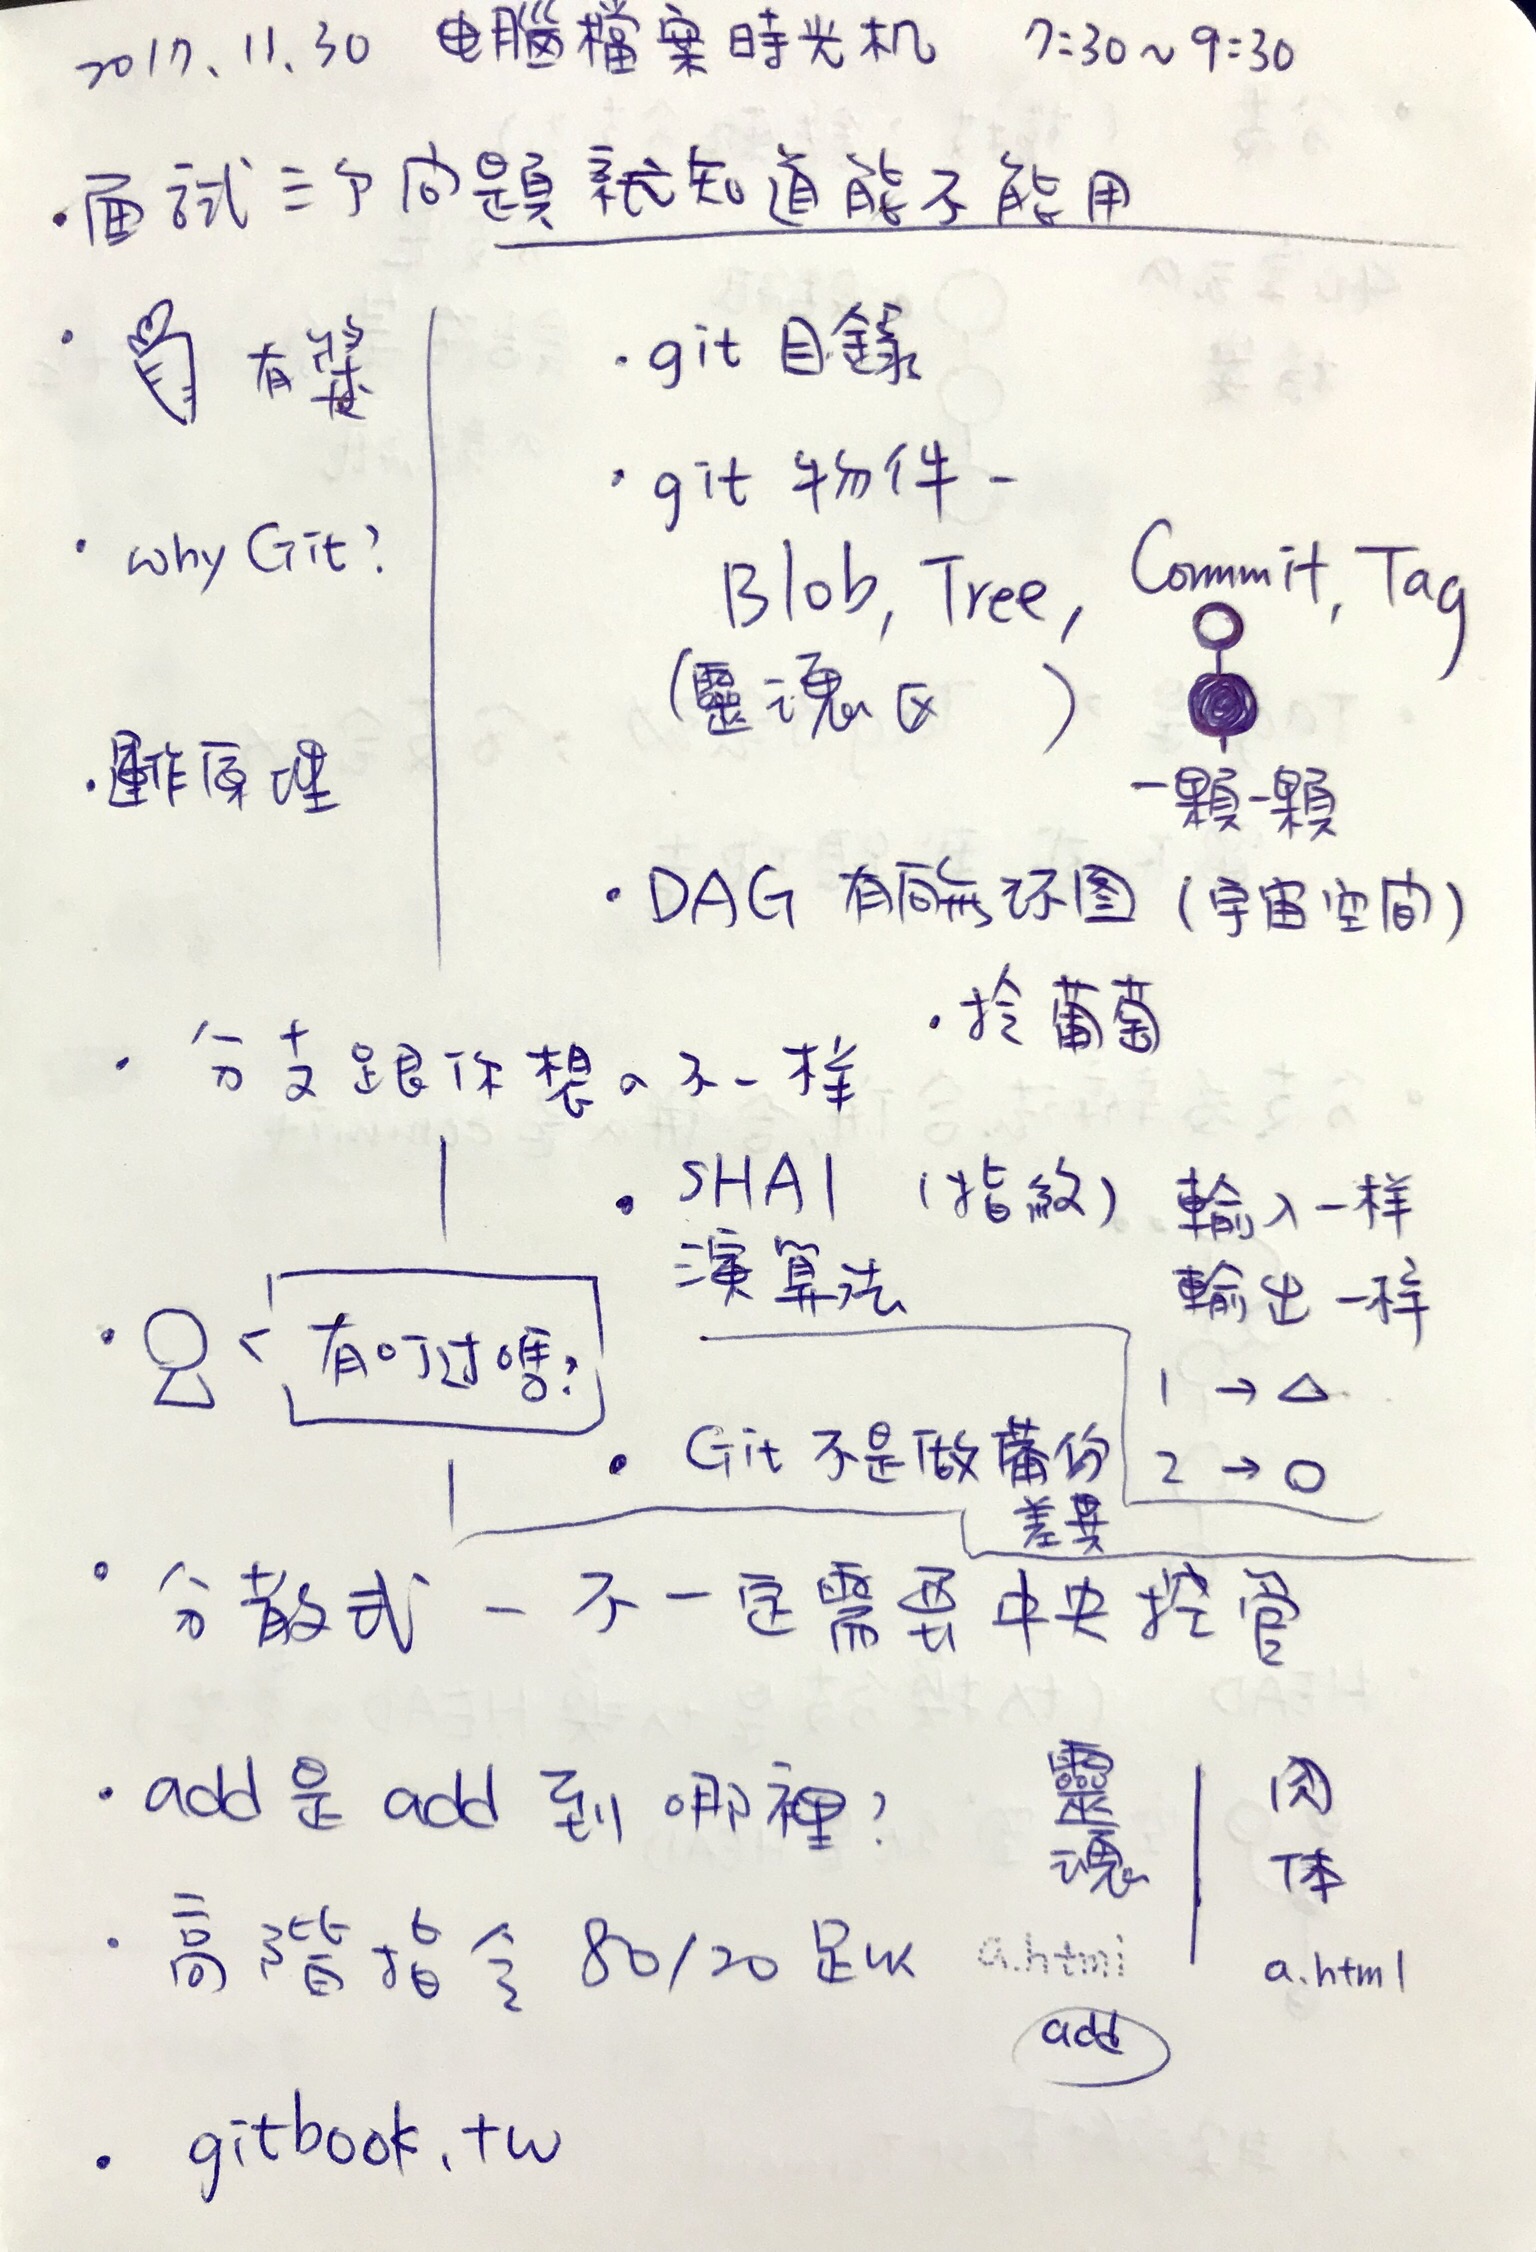 2017.11.30 电腦檔案時光机 7:30~9:30
·面試三个问題就知道能不能用
· 有梁
· why Git?
·運作原理
·git 目錄
·git 物件-
Blob, Tree, Commit, Tag
(靈魂区 )
一顆一顆
·DAG 有向無环图 (宇宙空间)
·拎葡萄
· 分支跟你想的不一样
· SHA1 (指紋) 輸入一样
演算法 輸出一样
1 → △
2 → ○
· 有听过嗎?
· Git 不是做備份
差異
· 分散式 - 不一定需要中央控管
· add 是 add 到哪裡?
靈魂
肉体
· 高階指令 80/20 足以
a.html
a.html
add
· gitbook.tw